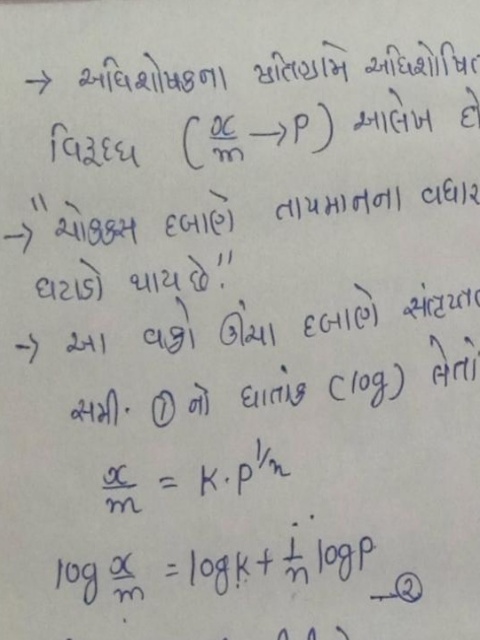 → અધિશોષકના પ્રતિગ્રામે અધિશોષિત
વિરૂદ્ધ (x/m → P) આલેખ દો
→ "ચોક્કસ દબાણે તાપમાનના વધાર
ઘટાડો થાય છે."
→ આ વક્રો ઊંચા દબાણે સંતૃપ્ત
સમી. ① નો ઘાતાંક (log) લેતાં
x/m = K.P^1/n
log x/m = logK + 1/n logP —②